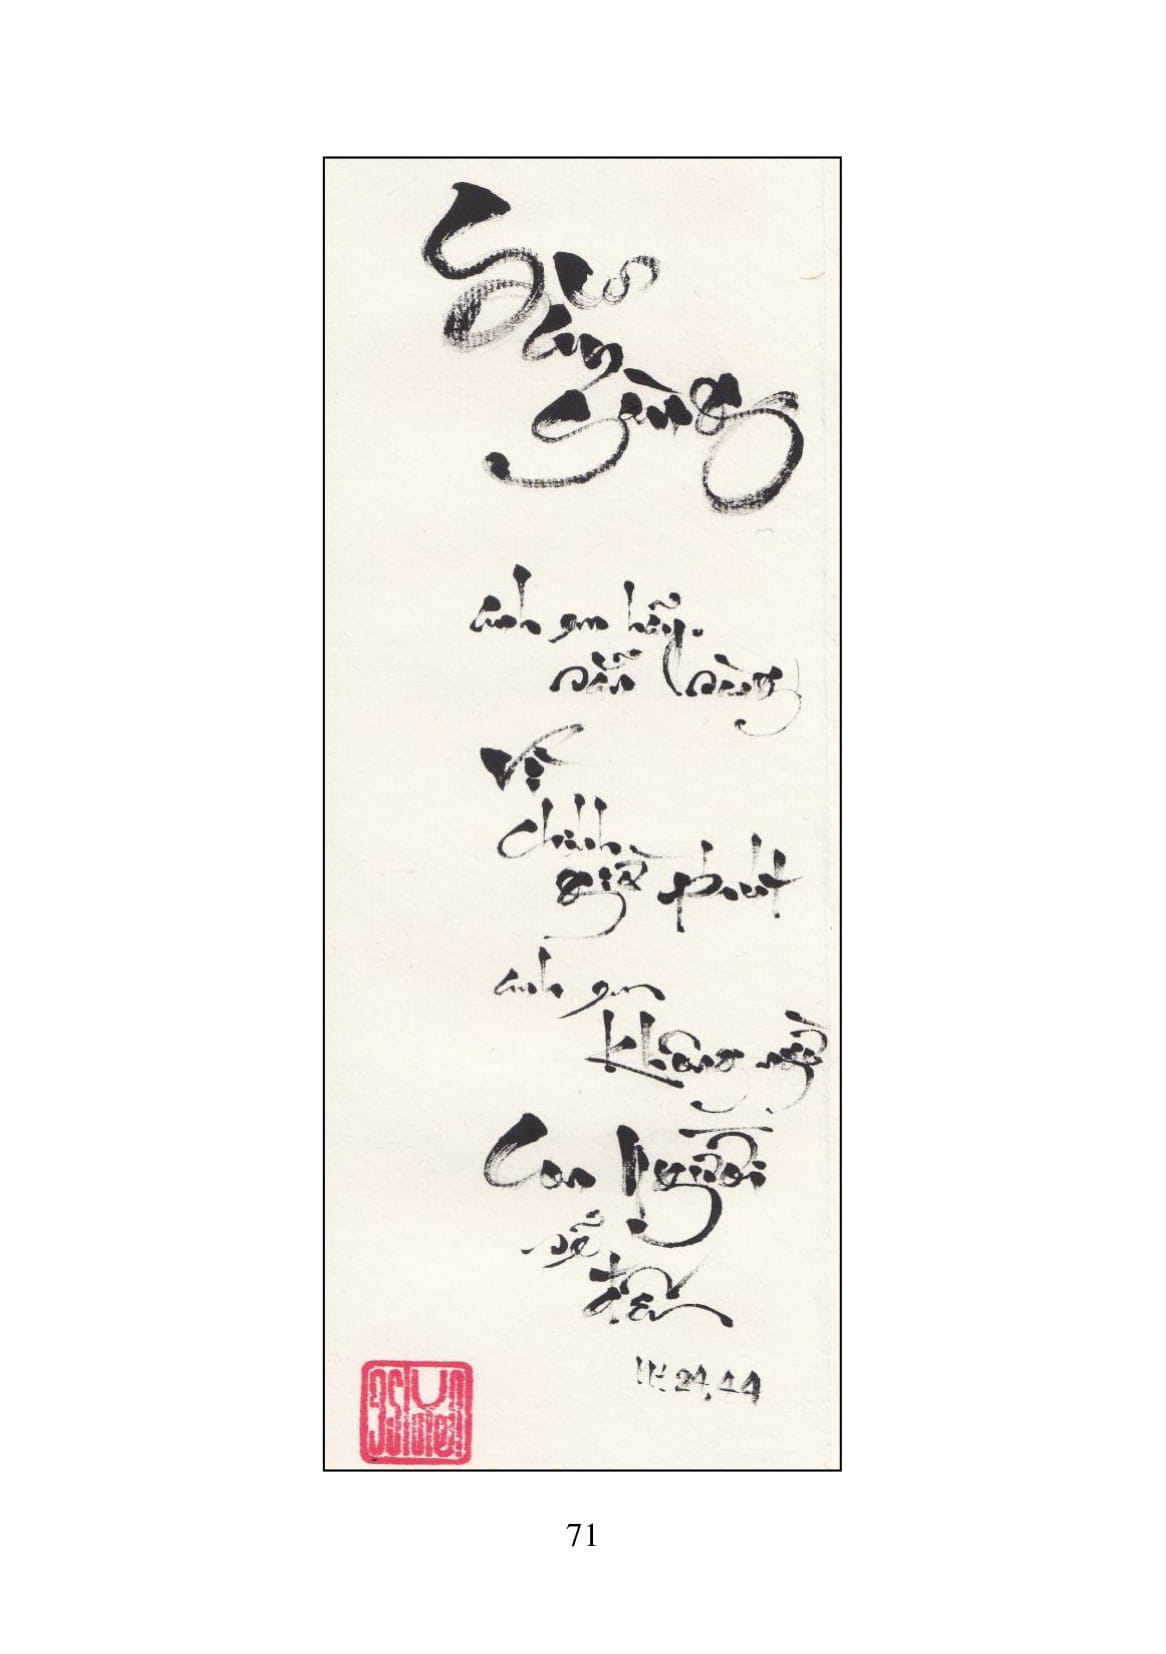 Sàng
anh em hãy
sẵn sàng
Vì
chính
giờ phút
anh em
không ngờ
Con Người
sẽ
đến
Mt 24,44
71